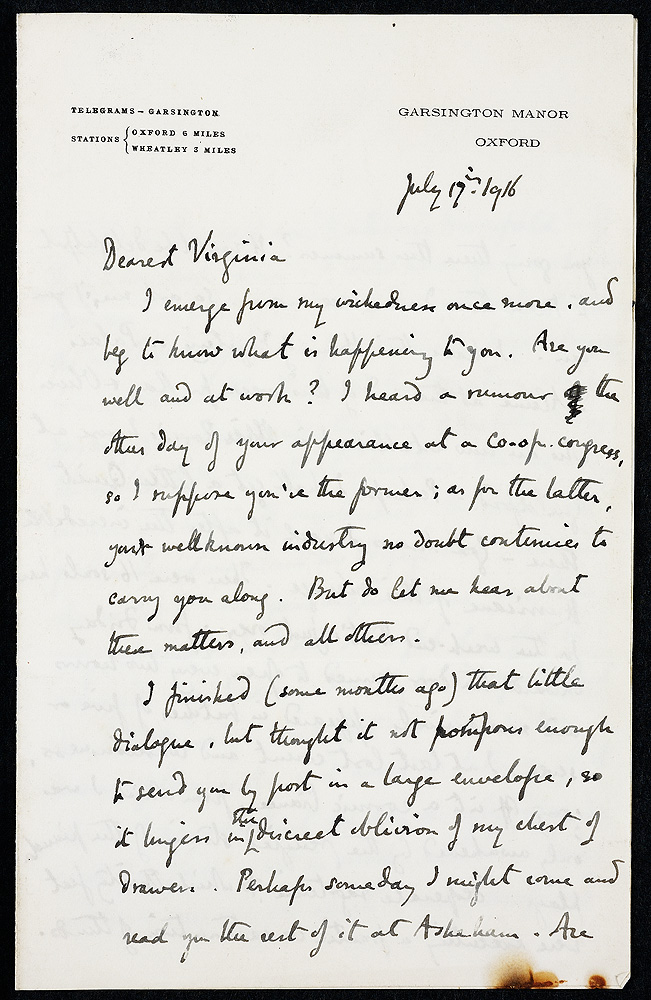 TELEGRAMS – GARSINGTON
STATIONS { OXFORD 6 MILES
WHEATLEY 3 MILES
GARSINGTON MANOR
OXFORD
July 17th. 1916
Dearest Virginia
I emerge from my wickedness once more, and
beg to know what is happening to you. Are you
well and at work? I heard a rumour the
other day of your appearance at a co-op. congress,
so I suppose you're the former; as for the latter,
your wellknown industry no doubt continues to
carry you along. But do let me hear about
these matters, and all others.
I finished (some months ago) that little
dialogue, but thought it not pompous enough
to send you by post in a large envelope, so
it lingers in the discreet oblivion of my chest of
drawers. Perhaps someday I might come and
read you the rest of it at Asheham. Are